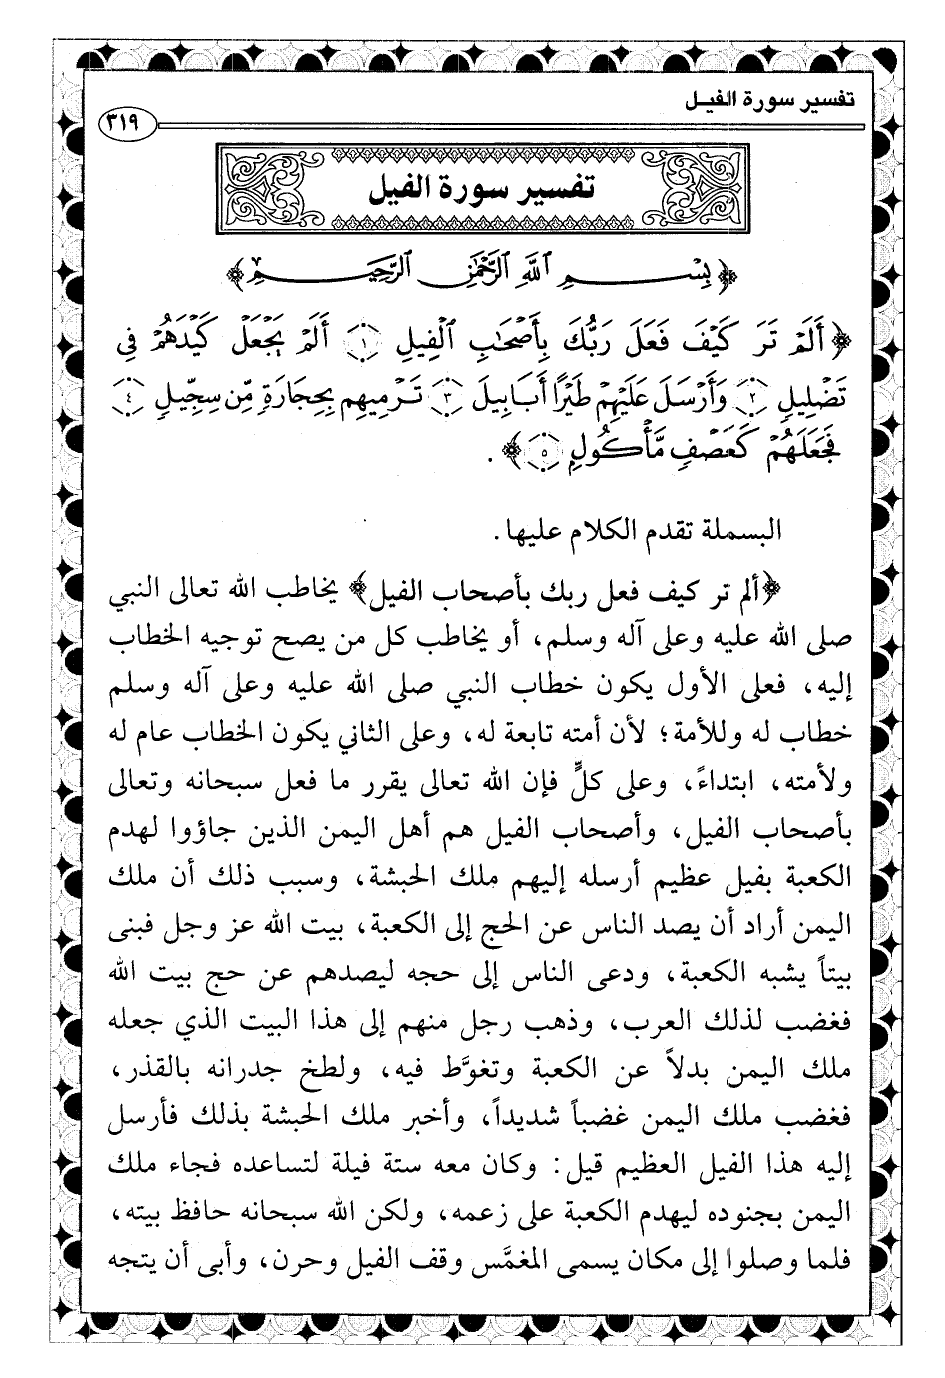 تفسير سورة الفيل
٣١٩
تفسير سورة الفيل
﴿بِسْمِ اللَّهِ الرَّحْمَٰنِ الرَّحِيمِ﴾
﴿أَلَمْ تَرَ كَيْفَ فَعَلَ رَبُّكَ بِأَصْحَابِ ٱلْفِيلِ ١ أَلَمْ يَجْعَلْ كَيْدَهُمْ فِي
تَضْلِيلٍ ٢ وَأَرْسَلَ عَلَيْهِمْ طَيْرًا أَبَابِيلَ ٣ تَرْمِيهِم بِحِجَارَةٍ مِّن سِجِّيلٍ ٤
فَجَعَلَهُمْ كَعَصْفٍ مَّأْكُولٍ ٥﴾.
البسملة تقدم الكلام عليها.
﴿ألم تر كيف فعل ربك بأصحاب الفيل﴾ يخاطب الله تعالى النبي
صلى الله عليه وعلى آله وسلم، أو يخاطب كل من يصح توجيه الخطاب
إليه، فعلى الأول يكون خطاب النبي صلى الله عليه وعلى آله وسلم
خطاب له وللأمة؛ لأن أمته تابعة له، وعلى الثاني يكون الخطاب عام له
ولأمته، ابتداءً، وعلى كلٍّ فإن الله تعالى يقرر ما فعل سبحانه وتعالى
بأصحاب الفيل، وأصحاب الفيل هم أهل اليمن الذين جاؤوا لهدم
الكعبة بفيل عظيم أرسله إليهم ملك الحبشة، وسبب ذلك أن ملك
اليمن أراد أن يصد الناس عن الحج إلى الكعبة، بيت الله عز وجل فبنى
بيتاً يشبه الكعبة، ودعى الناس إلى حجه ليصدهم عن حج بيت الله
فغضب لذلك العرب، وذهب رجل منهم إلى هذا البيت الذي جعله
ملك اليمن بدلاً عن الكعبة وتغوَّط فيه، ولطخ جدرانه بالقذر،
فغضب ملك اليمن غضباً شديداً، وأخبر ملك الحبشة بذلك فأرسل
إليه هذا الفيل العظيم قيل: وكان معه ستة فيلة لتساعده فجاء ملك
اليمن بجنوده ليهدم الكعبة على زعمه، ولكن الله سبحانه حافظ بيته،
فلما وصلوا إلى مكان يسمى المغمَّس وقف الفيل وحرن، وأبى أن يتجه